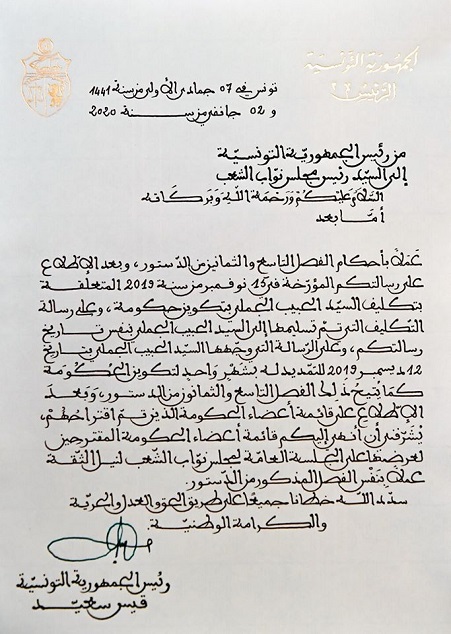 الجمهورية التونسية
الرئيس
تونس في 07 جمادى الأولى من سنة 1441
و 02 جانفي من سنة 2020
من رئيس الجمهورية التونسية
إلى السيد رئيس مجلس نواب الشعب
السلام عليكم ورحمة الله وبركاته
أما بعد
عملا بأحكام الفصل التاسع والثمانين من الدستور، وبعد الاطلاع
على رسالتكم المؤرخة في 15 نوفمبر من سنة 2019 المتعلقة
بتكليف السيد الحبيب الجملي بتكوين حكومة، وعلى رسالة
التكليف التي تم تسليمها إلى السيد الحبيب الجملي بنفس تاريخ
رسالتكم، وعلى الرسالة التي وجهها السيد الحبيب الجملي بتاريخ
12 ديسمبر 2019 للتمديد له بشهر واحد لتكوين الحكومة
كما يتيح ذلك الفصل التاسع والثمانون من الدستور، وبعد
الاطلاع على قائمة أعضاء الحكومة الذين تم اقتراحهم،
يشرفني أن أنهي إليكم قائمة أعضاء الحكومة المقترحين
لعرضها على الجلسة العامة لمجلس نواب الشعب لنيل الثقة
عملا بنفس الفصل المذكور من الدستور.
سدد الله خطانا جميعا على طريق الحق والعدل والحرية
والكرامة الوطنية.
رئيس الجمهورية التونسية
قيس سعيد